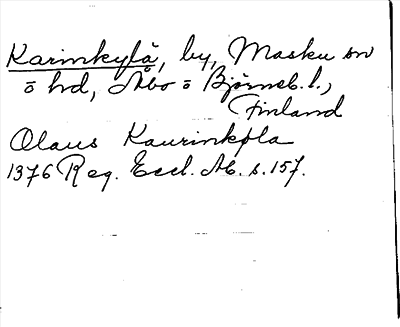 Karinkylä, by, Masku sn
o hd, Åbo o Björneb. l.,
Finland
Olaus Kaurinkyla
1376 Reg. Eccl. Ab. s. 157.